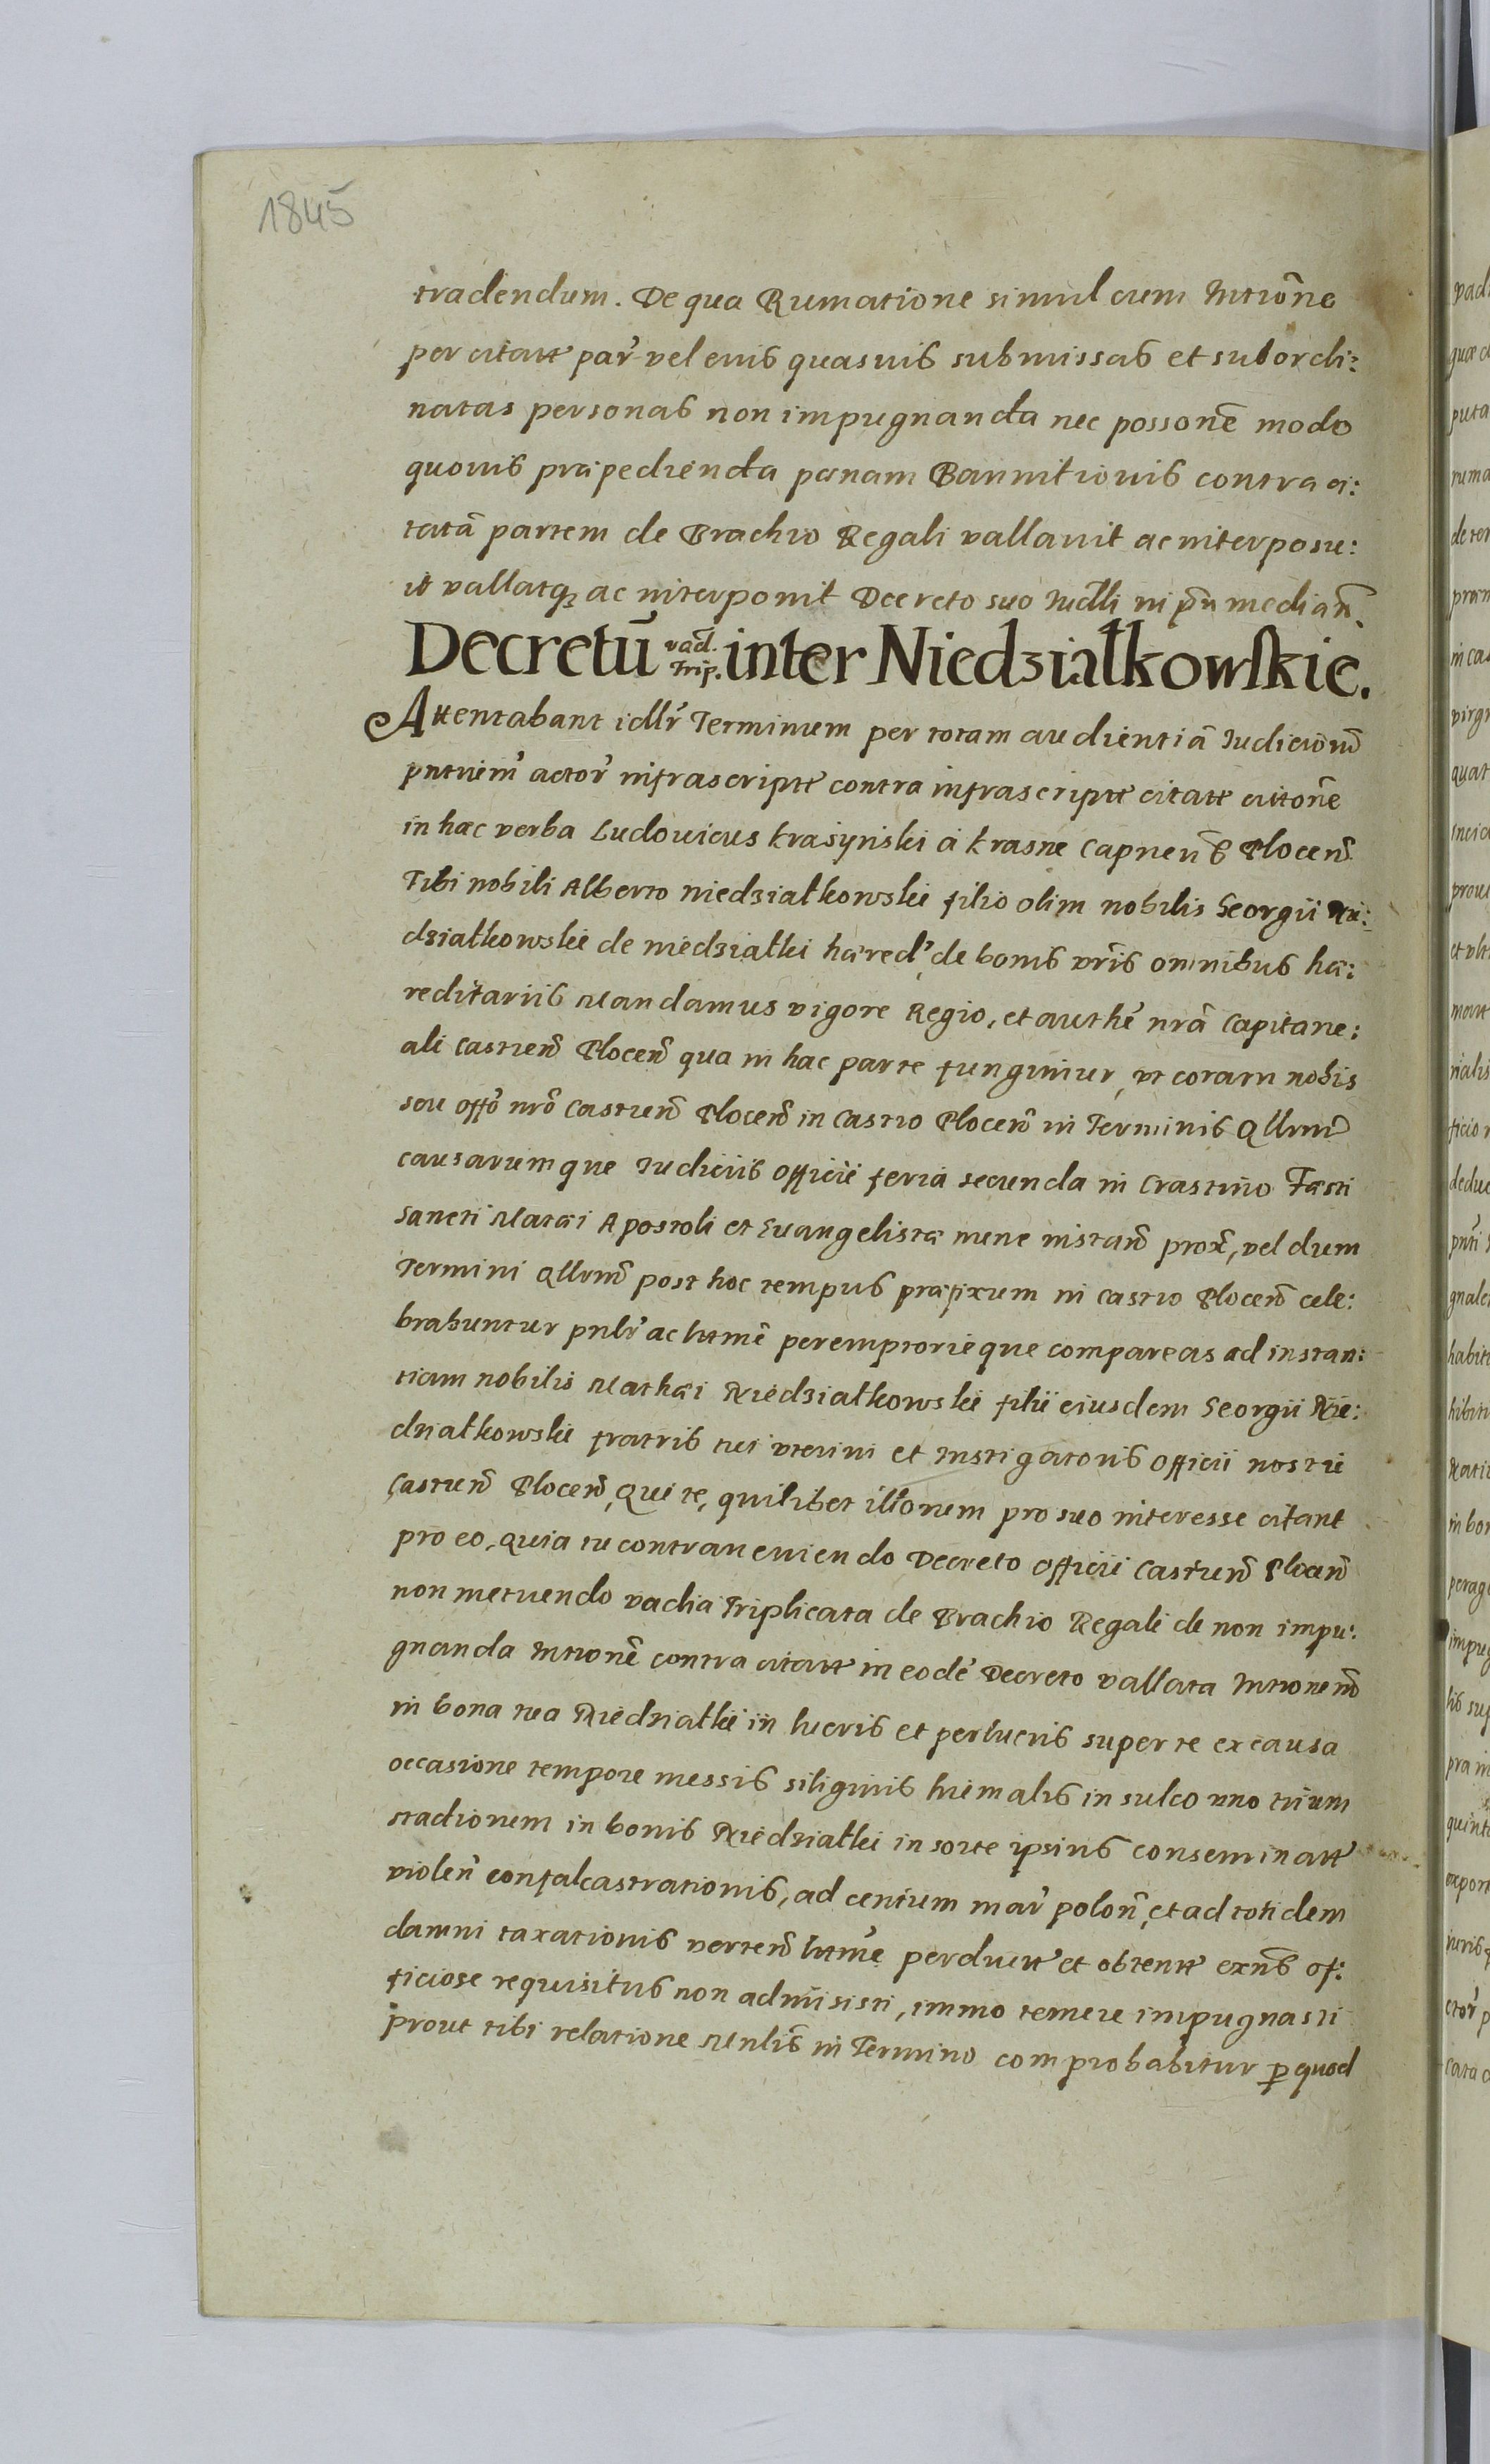 1845
tradendum. De qua Rumatione simul cum Intrône
per citatt par̃ vel eius quasuis submissas et subordi:
natas personas non impugnanda nec possonẽ modo
quouis præpedienda pænam Bannitionis contra ci:
tatã partem de Brachio Regali vallauit ac interposu:
it vallatqꝫ ac interponit Decreto suo Iudlli in pñ median̄.
Decretũ vad. trip. inter Niedzialkowskie.
Attentabant idllr̃ Terminum per totam audientiã Iudiciorũ
pntium̃ actor̃ infrascripte contra infrascripte citatt citõne
in hæc verba Ludouicus Krasynski á Krasne Capneũs Plocen̄
Tibi nobili Alberto niedzialkowski filio olim nobilis Georgii Nie:
dzialkowski de niedzialki hæred̃, de bonis vr̃is omnibus hæ:
reditariis Mandamus vigore Regio, et authẽ nrã Capitane:
ali castren̄ Plocen̄ qua in hac parte fungimur, vt coram nobis
seu offõ nrõ castren̄ Plocen̄ in castro Plocen̄ in Terminis Qllrum̃
causarumque Iudiciis officii feria secunda in Crastino Fæsti
Sancti Matæi Apostoli et Euangelistæ nunc instan̄ prox̃, vel dum
Termini Qllrum̃ post hoc tempus præfixum in castro Plocen̄ cele:
brabuntur pnlr̃ ac lttmẽ peremptorieque compareas ad instan:
tiam nobilis Mathæi Niedzialkowski filii eiusdem Georgii Nie:
dzialkowski fratris tui vterini et Instigatoris officii nostri
Castren̄ Plocen̄, Qui te, quilibet illorum pro suo interesse citant
pro eo, quia tu contraueniendo Decreto officii Castren̄ Plocen̄
non metuendo vadia Triplicata de Brachio Regali de non impu:
gnanda Intronẽ contra citatt in eodẽ Decreto vallata Intronem̃
in bona tua Niedzialki in lucris et perlucris super te ex causa
occasione tempore messis siliginis hiemalis in sulco vno trium
stadiorum in bonis Niedzialki in sorte ipsius conseminatt
violen̄ confalcastrationis, ad centum mar̃ polon̄, et ad totidem
damni taxationis verten̄ lttmẽ perductt et obtentt exñs of:
ficiose requisitus non admisisti, immo temere impugnasti
prout tibi relatione Mnlis̃ in Termino comprobabitur ꝑ quod